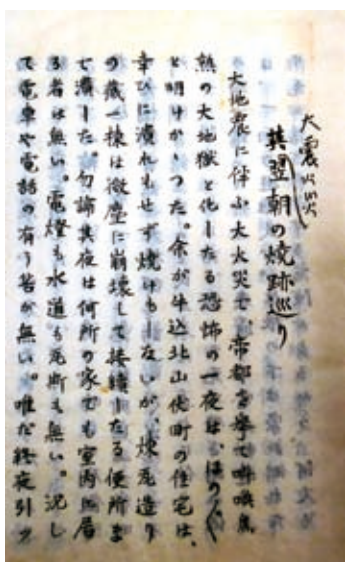 大震火災
其翌朝の焼跡巡り
大地震に伴ふ大火災で帝都を挙て叫喚焦
熱の大地獄と化したる恐怖の一夜は、ほの〴〵
と明けかゝつた。余が牛込北山伏町の住宅は、
幸ひに潰れもせず焼けもし無いが、煉瓦造り
の蔵一棟は微塵に崩壊して接続したる便所ま
で潰した。勿論其夜は何所の家でも室内に居
る者は無い。電燈も水道も瓦斯も無い。況し
て電車や電話の有う筈が無い。唯だ終夜引ッ